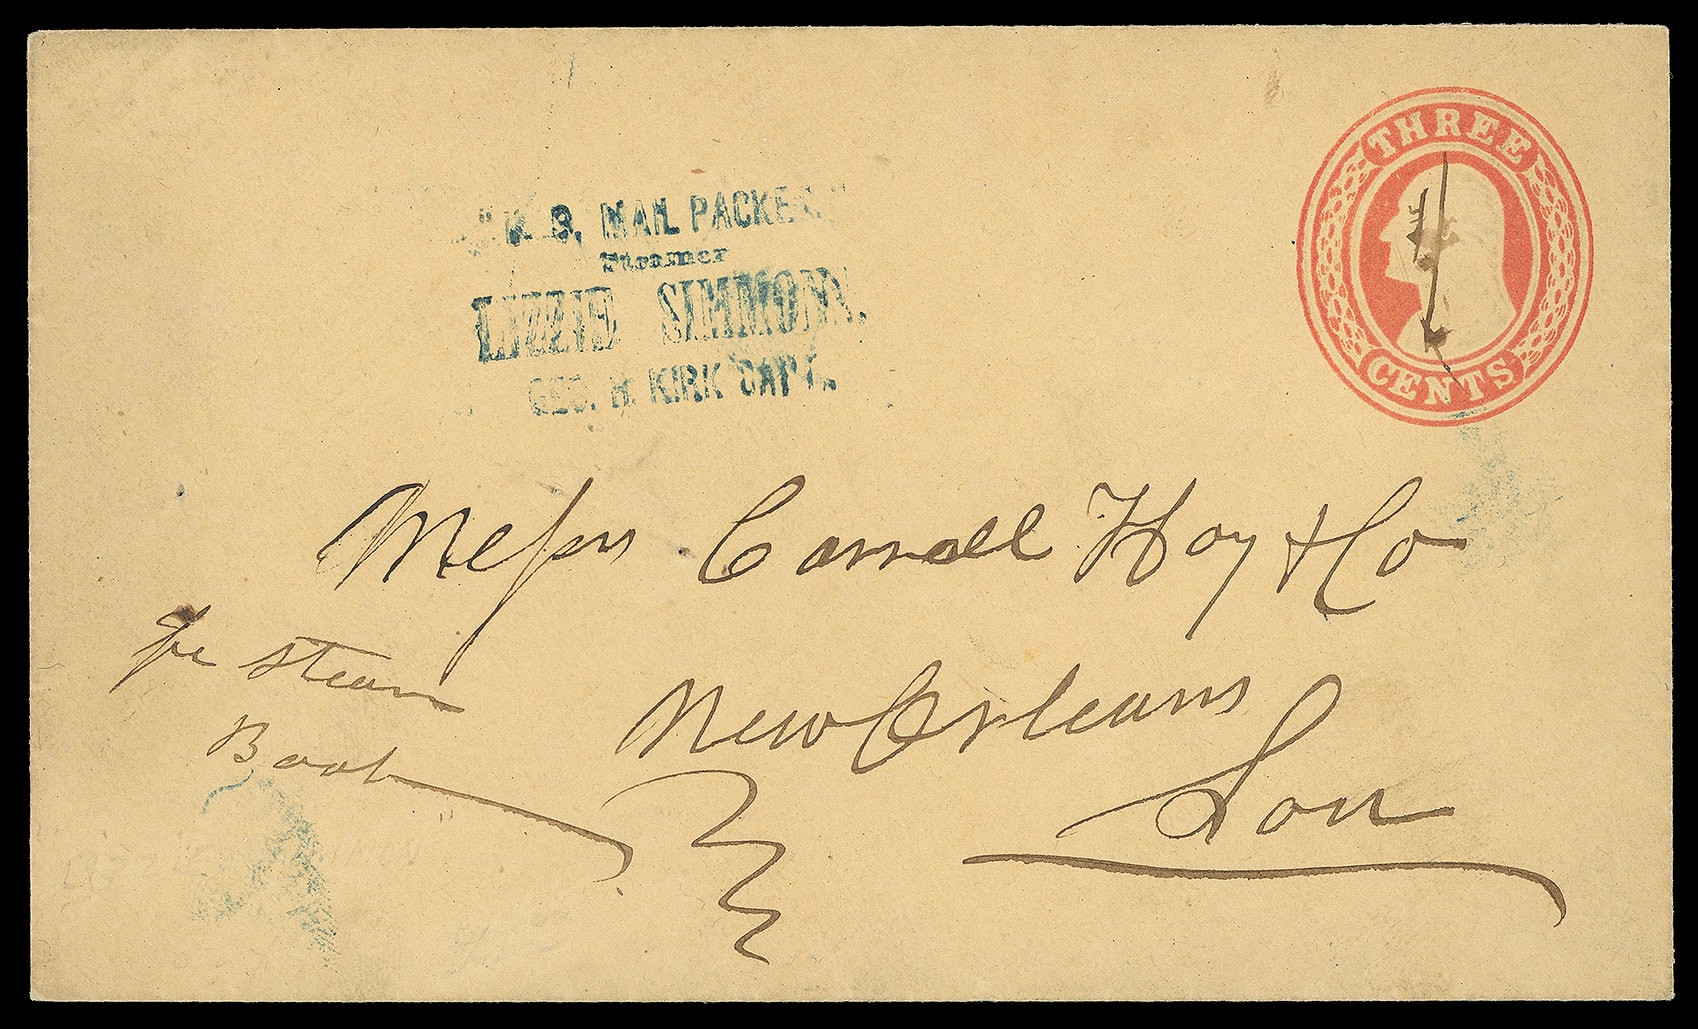 THREE
CENTS
"U. S. MAIL PACKET"
Steamer
LIZZIE SIMMONS,
GEO. H. KIRK CAPT.
Messrs Carroll Hoy & Co
pr Steam
Boat
New Orleans
Lou